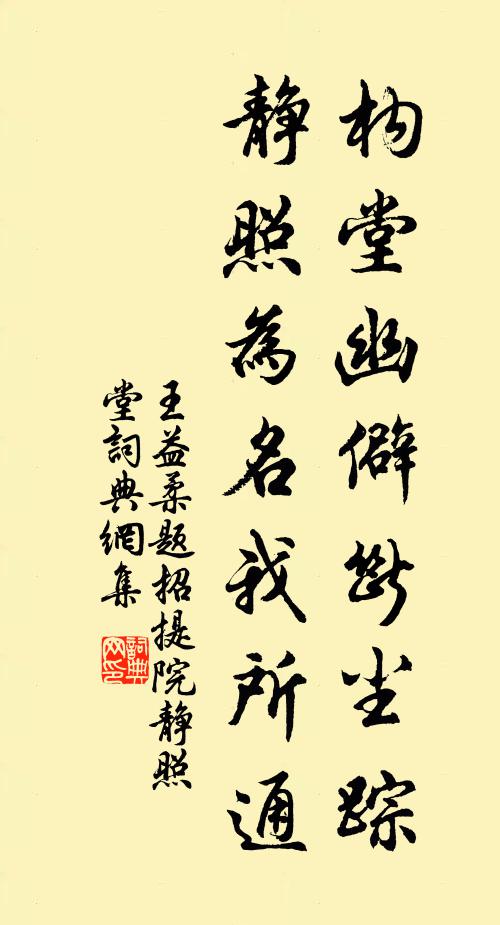 构堂幽僻断尘踪
静照為名我所通
王益柔题招提院静照
堂詞典網集
詞典网印